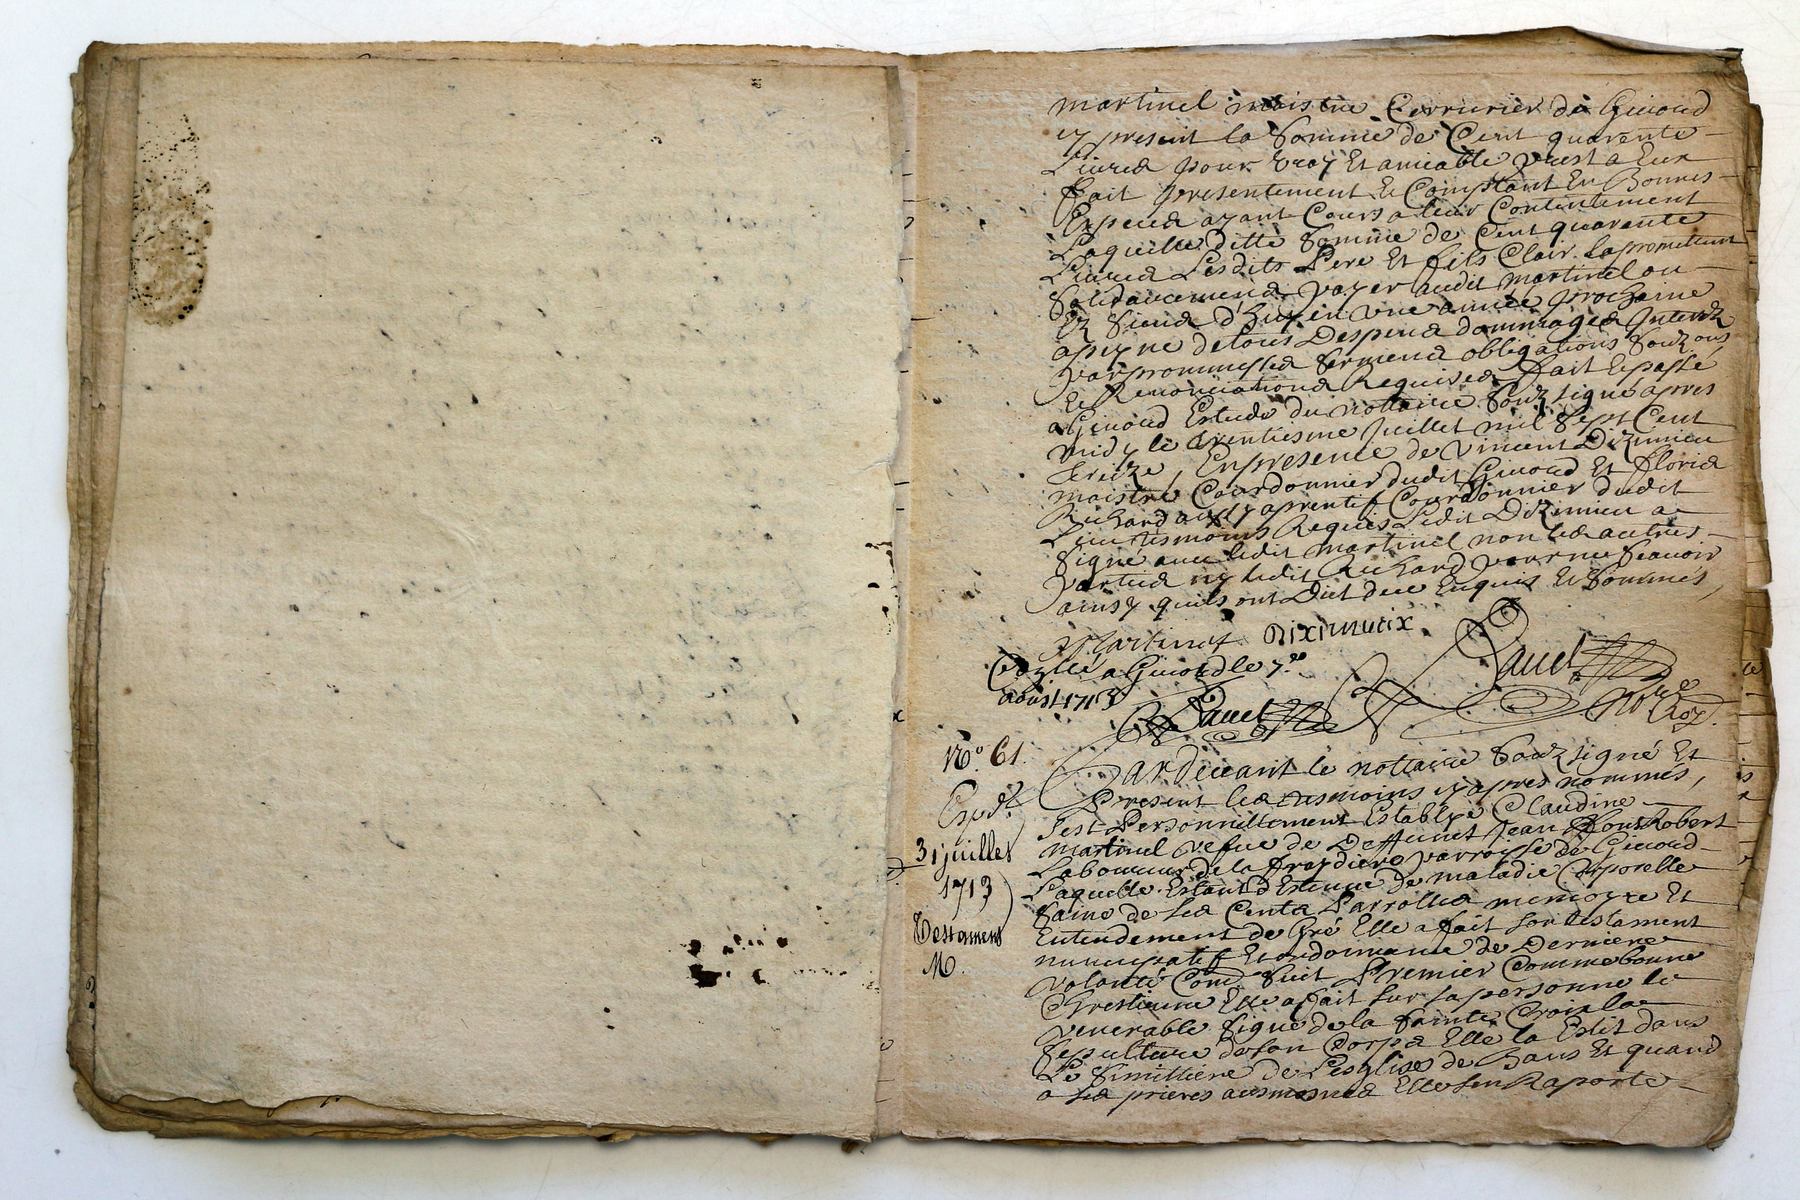 martinel maistre Cerrurier de Givord
y present la somme de Cent quarente
Livres pour vray Et amiable prest a Eux
fait presentement Et Comptant En Bonnes
Especes ayant Cours a leur Contentement
Laquelle ditte somme de Cent quarente
Livres Lesdits Pere Et fils Clair promettent
solidairement payer audit martinel ou
siens d'huy en une année prochaine
a peyne de tous Despens dommages Interests
par promesses sermens obligations
Et Renonciations Requises fait Et passé
a Givord Estude du nottaire souzsigné apres
midy le trentiesme Juillet mil sept Cent
treize, En presence de Vincent Diximieu
maistre Courdonnier dudit Givord Et floris
Richard aussy aprentif Courdonnier dudit
Lieu tesmoins Requis Ledit Diximieu a
signé avec ledit martinel non les autres
parties ny ledit Richard pour ne scavoir
ainsy quils ont Dit de ce Enquis Et sommés,
Martinel Diximieux
a Givord le 7.e
aoust 1713
No. 61
Exped.
31 juillet
1713
Testament
M.
Pardevant le nottaire souzsigné Et
Present les tesmoins cy apres nommés,
sest Personnellement Establye Claudine
martinel vefve de Deffunct Jean Robert
Laboureur de la parroisse de Givord
Laquelle Estant Detenue de maladie Corporelle
saine de ses Cents Parrolles memoyre Et
Entendement de Gré Elle a fait son testament
nuncupatif Et ordonnance de Derniere
volonté Com.e suit Premier Comme bonne
Chrestienne Elle a fait sur sa personne le
venerable signe de la sainte Croix la
sepulture de son Corps Elle la Eslit dans
Le simittiere de Lesglise de Bans Et quand
a ses prieres ausmosnes Elle sen Raporte